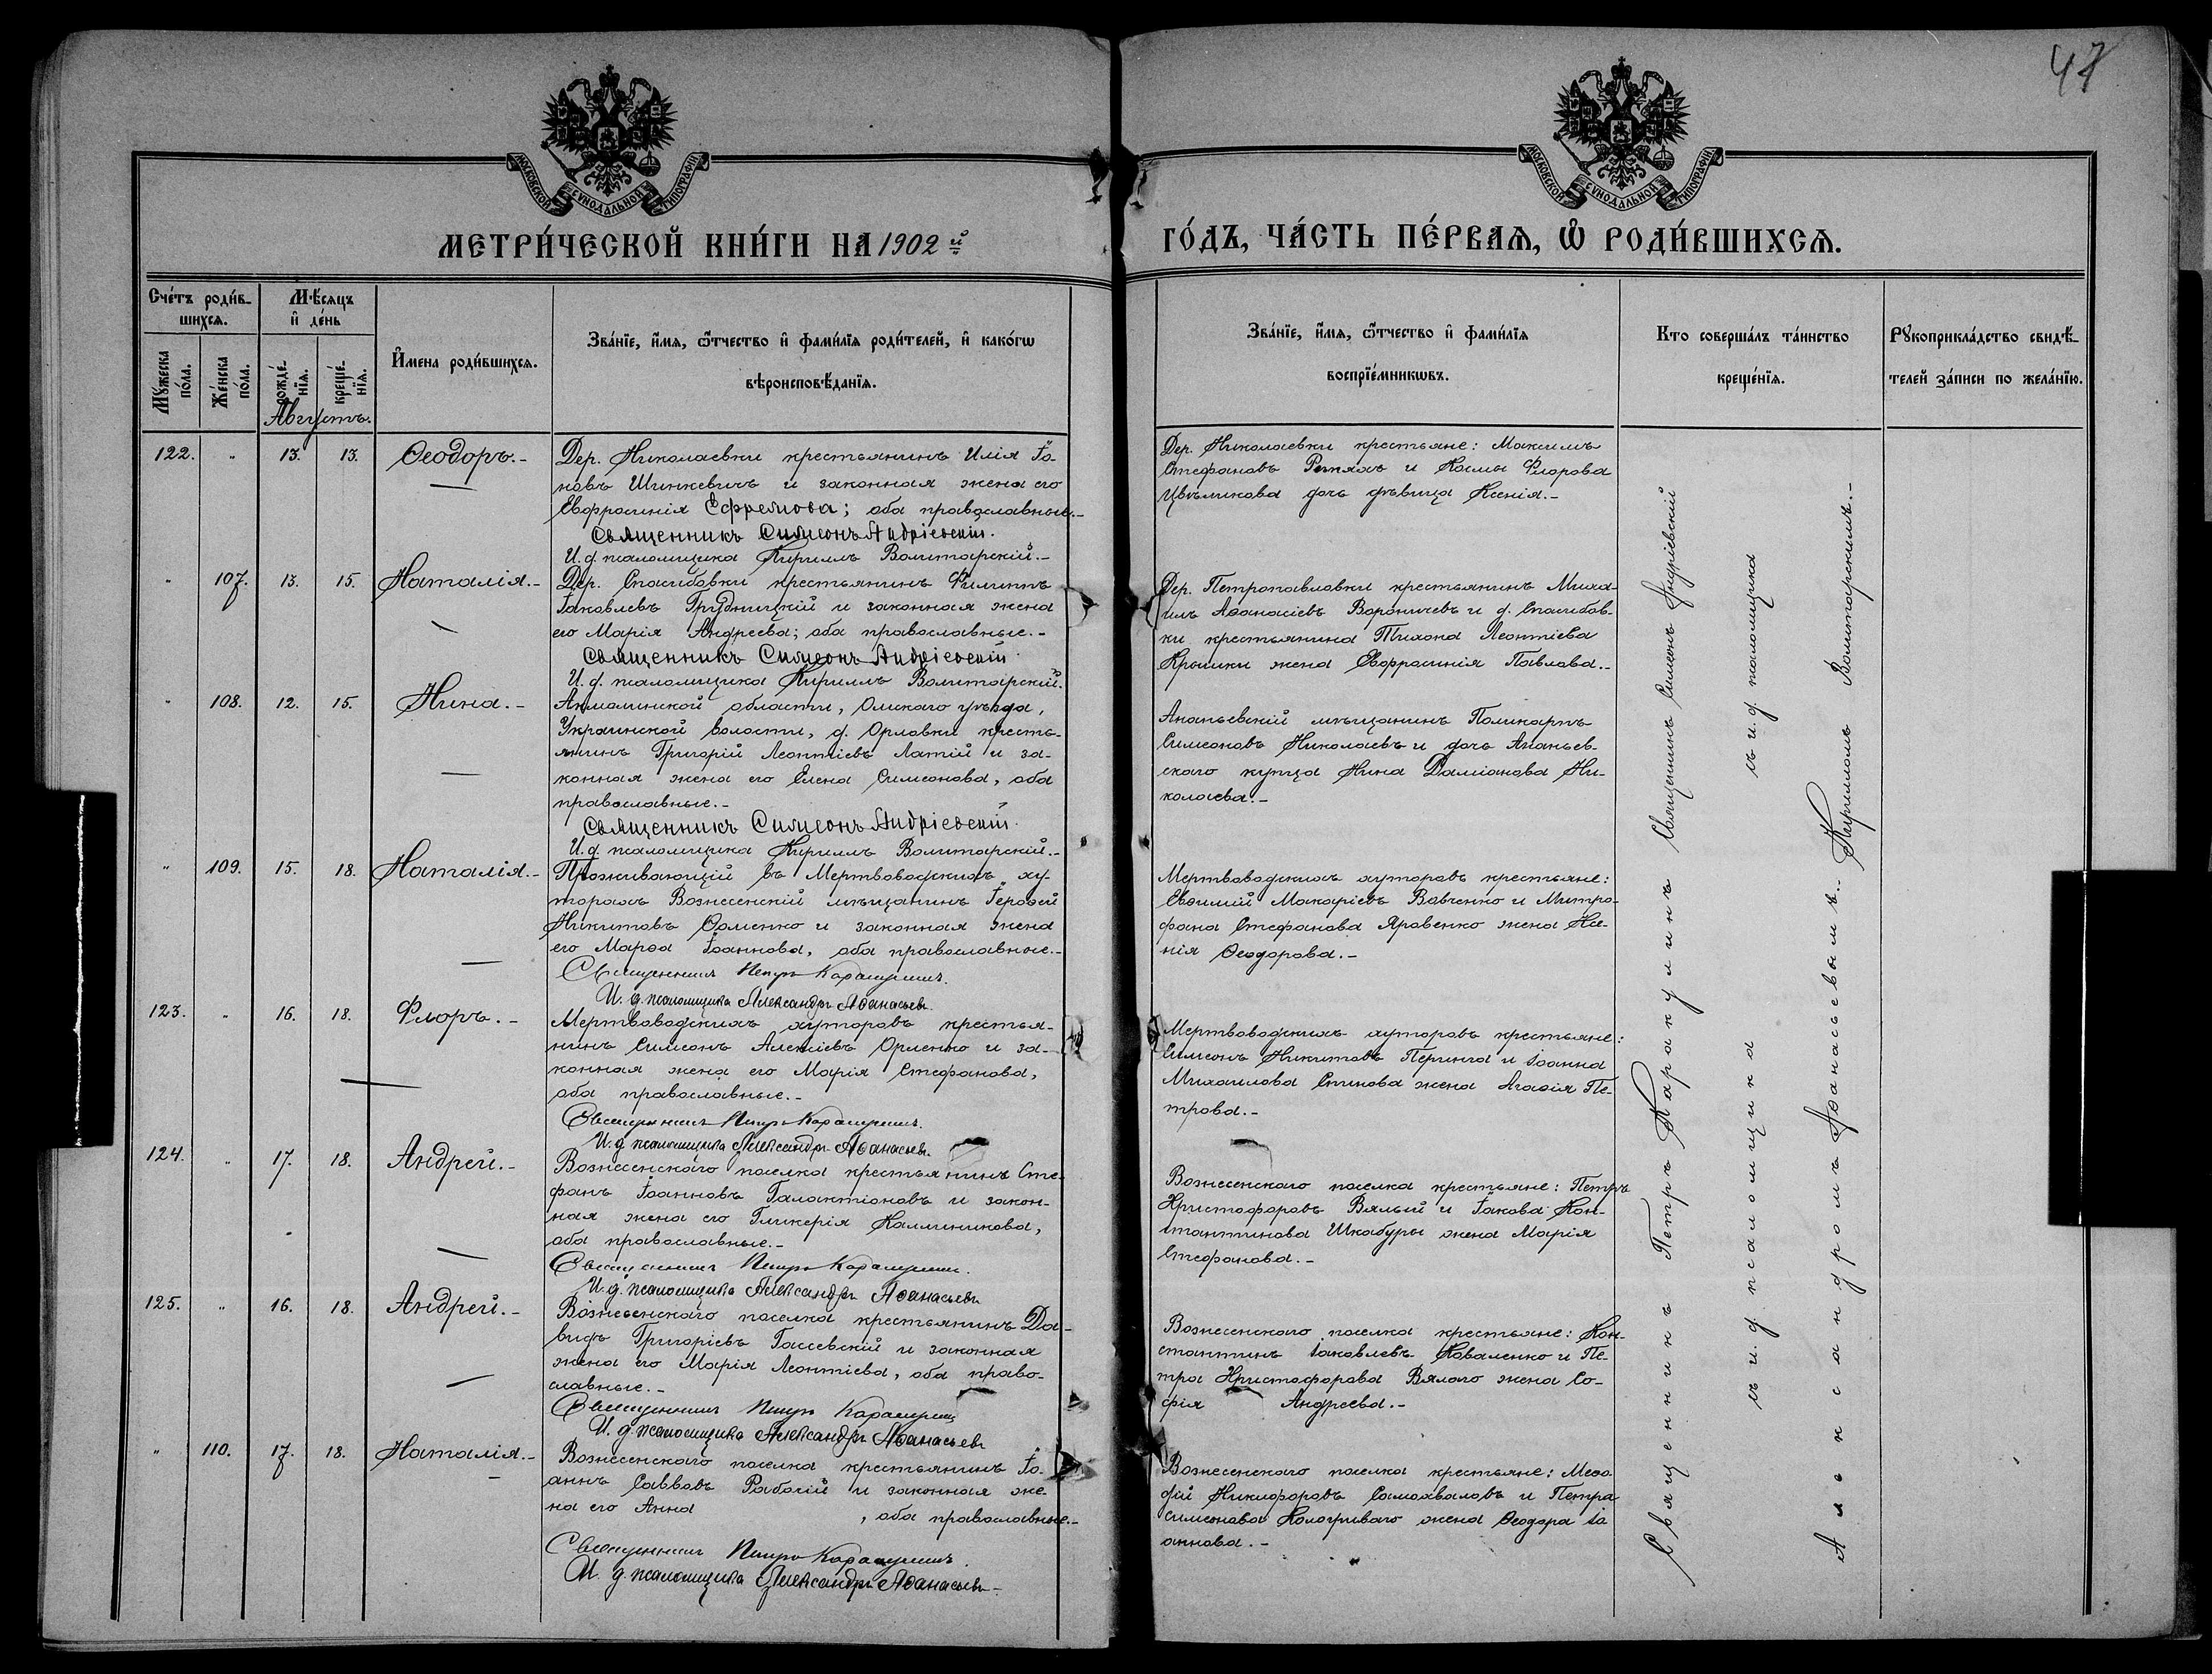 47
МОСКОВСКОЙ СѴНОДАЛЬНОЙ ТИПОГРАФІИ
МОСКОВСКОЙ СѴНОДАЛЬНОЙ ТИПОГРАФІИ
МЕТРИ́ЧЕСКОЙ КНИ́ГИ НА 1902 й
ГО́ДЪ, ЧА́СТЬ ПЕ́РВАЯ, Ѡ РОДИ́ВШИХСЯ.
Сче́тъ роди́в-
шихся.
Мѣ́сяцъ
и҆ де́нь
Му́жеска по́ла.
Же́нска по́ла.
рожде́-
нїя.
креще́-
нїя.
И҆мена роди́вшихся.
Зва́нїе, и҆́мя, ѻ҆́тчество и҆ фами́лїя роди́телей, и҆ како́гѡ
вѣроисповѣ́данїя.
Зва́нїе, и҆́мя, ѻ҆́тчество и҆ фами́лїя
воспрїе́мникѡвъ.
Кто соверша́лъ та́инство
креще́нїя.
Рукоприкла́дство свидѣ́-
телей за́писи по жела́нїю.
Августъ.
122. " 13. 13. Ѳеодоръ.-
Дер. Николаевки крестьянинъ Илія Іо-
новъ Шинкевичъ и законная жена его
Евфросинія Ефремова; оба православные.-
Священникъ Симеонъ Андріевскій.
И. д. псаломщика Кириллъ Волитарскій.-
Дер. Николаевки крестьяне: Максимъ
Стефановъ Репяхъ и Космы Флорова
Цвѣликова дочь дѣвица Ксенія.-
" 107. 13. 15. Наталія.-
Дер. Спасибовки крестьянинъ Филиппъ
Іаковлевъ Грудницкій и законная жена
его Марія Андреева; оба православные.-
Священникъ Симеонъ Андріевскій
И. д. псаломщика Кириллъ Волитарскій.
Дер. Петропавловки крестьянинъ Миха-
илъ Аѳанасіевъ Вороничевъ и д. Спасибов-
ки крестьянина Тихона Леонтіева
Крошки жена Евфросинія Павлова.-
" 108. 12. 15. Нина.-
Акмолинской области, Омскаго уѣзда,
Украинской волости, д. Орловки кресть-
янинъ Григорій Леонтіевъ Латій и за-
конная жена его Елена Симеонова, оба
православные.-
Священникъ Симеонъ Андріевскій.
И. д. псаломщика Кириллъ Волитарскій.-
Ананьевскій мѣщанинъ Поликарпъ
Симеоновъ Николаевъ и дочь Ананьев-
скаго купца Нина Даміанова Ни-
колаева.-
" 109. 15. 18. Наталія.-
Проживающій въ Мертвоводскихъ ху-
торахъ Вознесенскій мѣщанинъ Іероѳей
Никитовъ Ѳоменко и законная жена
его Марѳа Іоаннова, оба православные.-
Священникъ Петръ Каракулинъ.
И. д. псаломщика Александръ Аѳанасьевъ
Мертвоводскихъ хуторовъ крестьяне:
Евѳимій Макаріевъ Вовченко и Митро-
фана Стефанова Яровенко жена Ксе-
нія Ѳеодорова.-
123. " 16. 18. Флоръ.-
Мертвоводскихъ хуторовъ крестья-
нинъ Симеонъ Алексіевъ Орленко и за-
конная жена его Марія Стефанова,
оба православные.-
Священникъ Петръ Каракулинъ.
И. д. псаломщика Александръ Аѳанасьевъ.
Мертвоводскихъ хуторовъ крестьяне:
Симеонъ Никитовъ Перинга и Іоанна
Михаилова Спинова жена Агаѳія Пе-
трова.-
124. " 17. 18. Андрей.-
Вознесенскаго поселка крестьянинъ Сте-
фанъ Іоанновъ Галактіоновъ и закон-
ная жена его Гликерія Каллиникова,
оба православные.-
Священникъ Петръ Каракулинъ.
И. д. псаломщика Александръ Аѳанасьевъ
Вознесенскаго поселка крестьяне: Петръ
Христофоровъ Вялый и Іакова Кон-
стантинова Шкабуры жена Марія
Стефанова.-
125. " 16. 18. Андрей.-
Вознесенскаго поселка крестьянинъ Да-
видъ Григоріевъ Гассевскій и законная
жена его Марія Леонтіева, оба право-
славные.-
Священникъ Петръ Каракулинъ
И. д. псаломщика Александръ Аѳанасьевъ
Вознесенскаго поселка крестьяне: Кон-
стантинъ Іаковлевъ Коваленко и Пе-
тра Христофорова Вялаго жена Со-
фія Андреева.-
" 110. 17. 18. Наталія.-
Вознесенскаго поселка крестьянинъ Іо-
аннъ Саввовъ Рабочій и законная же-
на его Анна , оба православные.-
Священникъ Петръ Каракулинъ.
И. д. псаломщика Александръ Аѳанасьевъ-
Вознесенскаго поселка крестьяне: Меѳо-
дій Никифоровъ Самохваловъ и Петра
Симеонова Кологриваго жена Ѳеодора Іо-
аннова.-
Священникъ Симеонъ Андріевскій
съ и. д. псаломщика
Кирилломъ Волитарскимъ.-
Священникъ Петръ Каракулинъ
съ и. д. псаломщика
Александромъ Аѳанасьевымъ.-